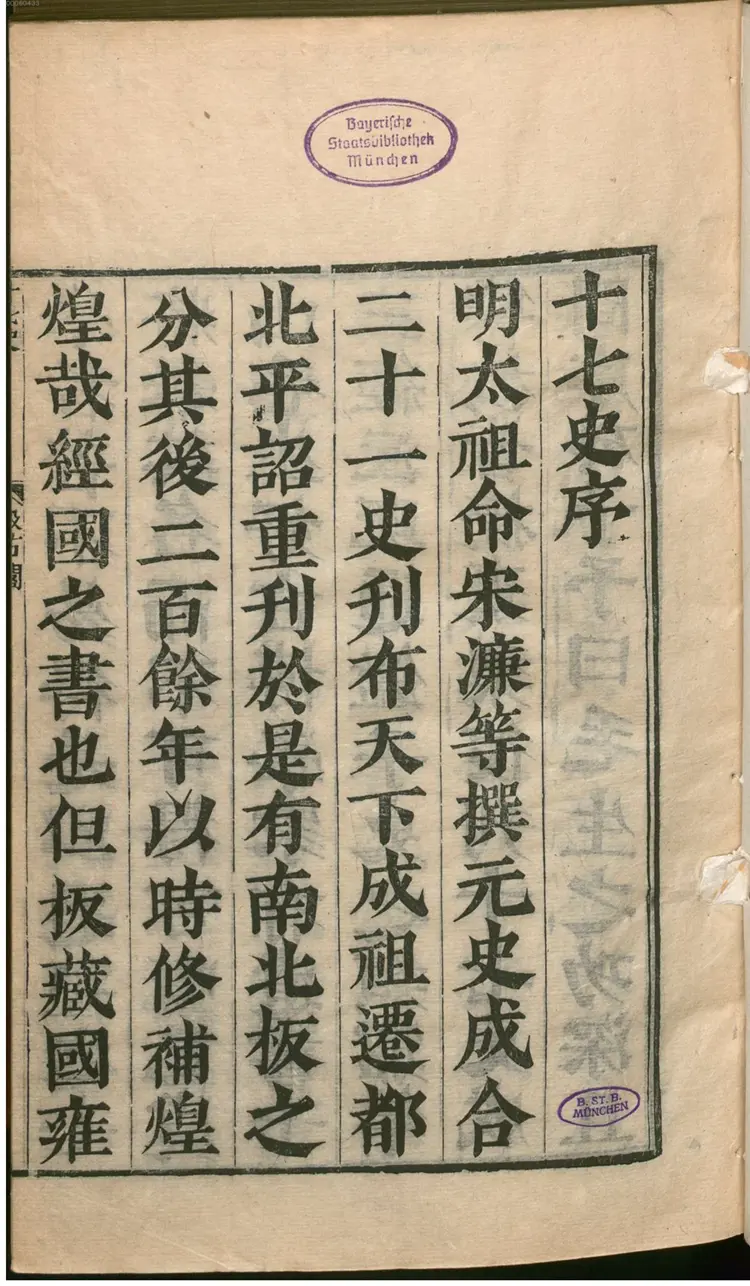 00080433
Bayerische
Staatsbibliothek
München
十七史序
明太祖命宋濂等撰元史成合
二十一史刊布天下成祖遷都
北平詔重刊於是有南北板之
分其後二百餘年以時修補煌
煌哉經國之書也但板藏國雍
汲古閣
B. ST. B.
MÜNCHEN